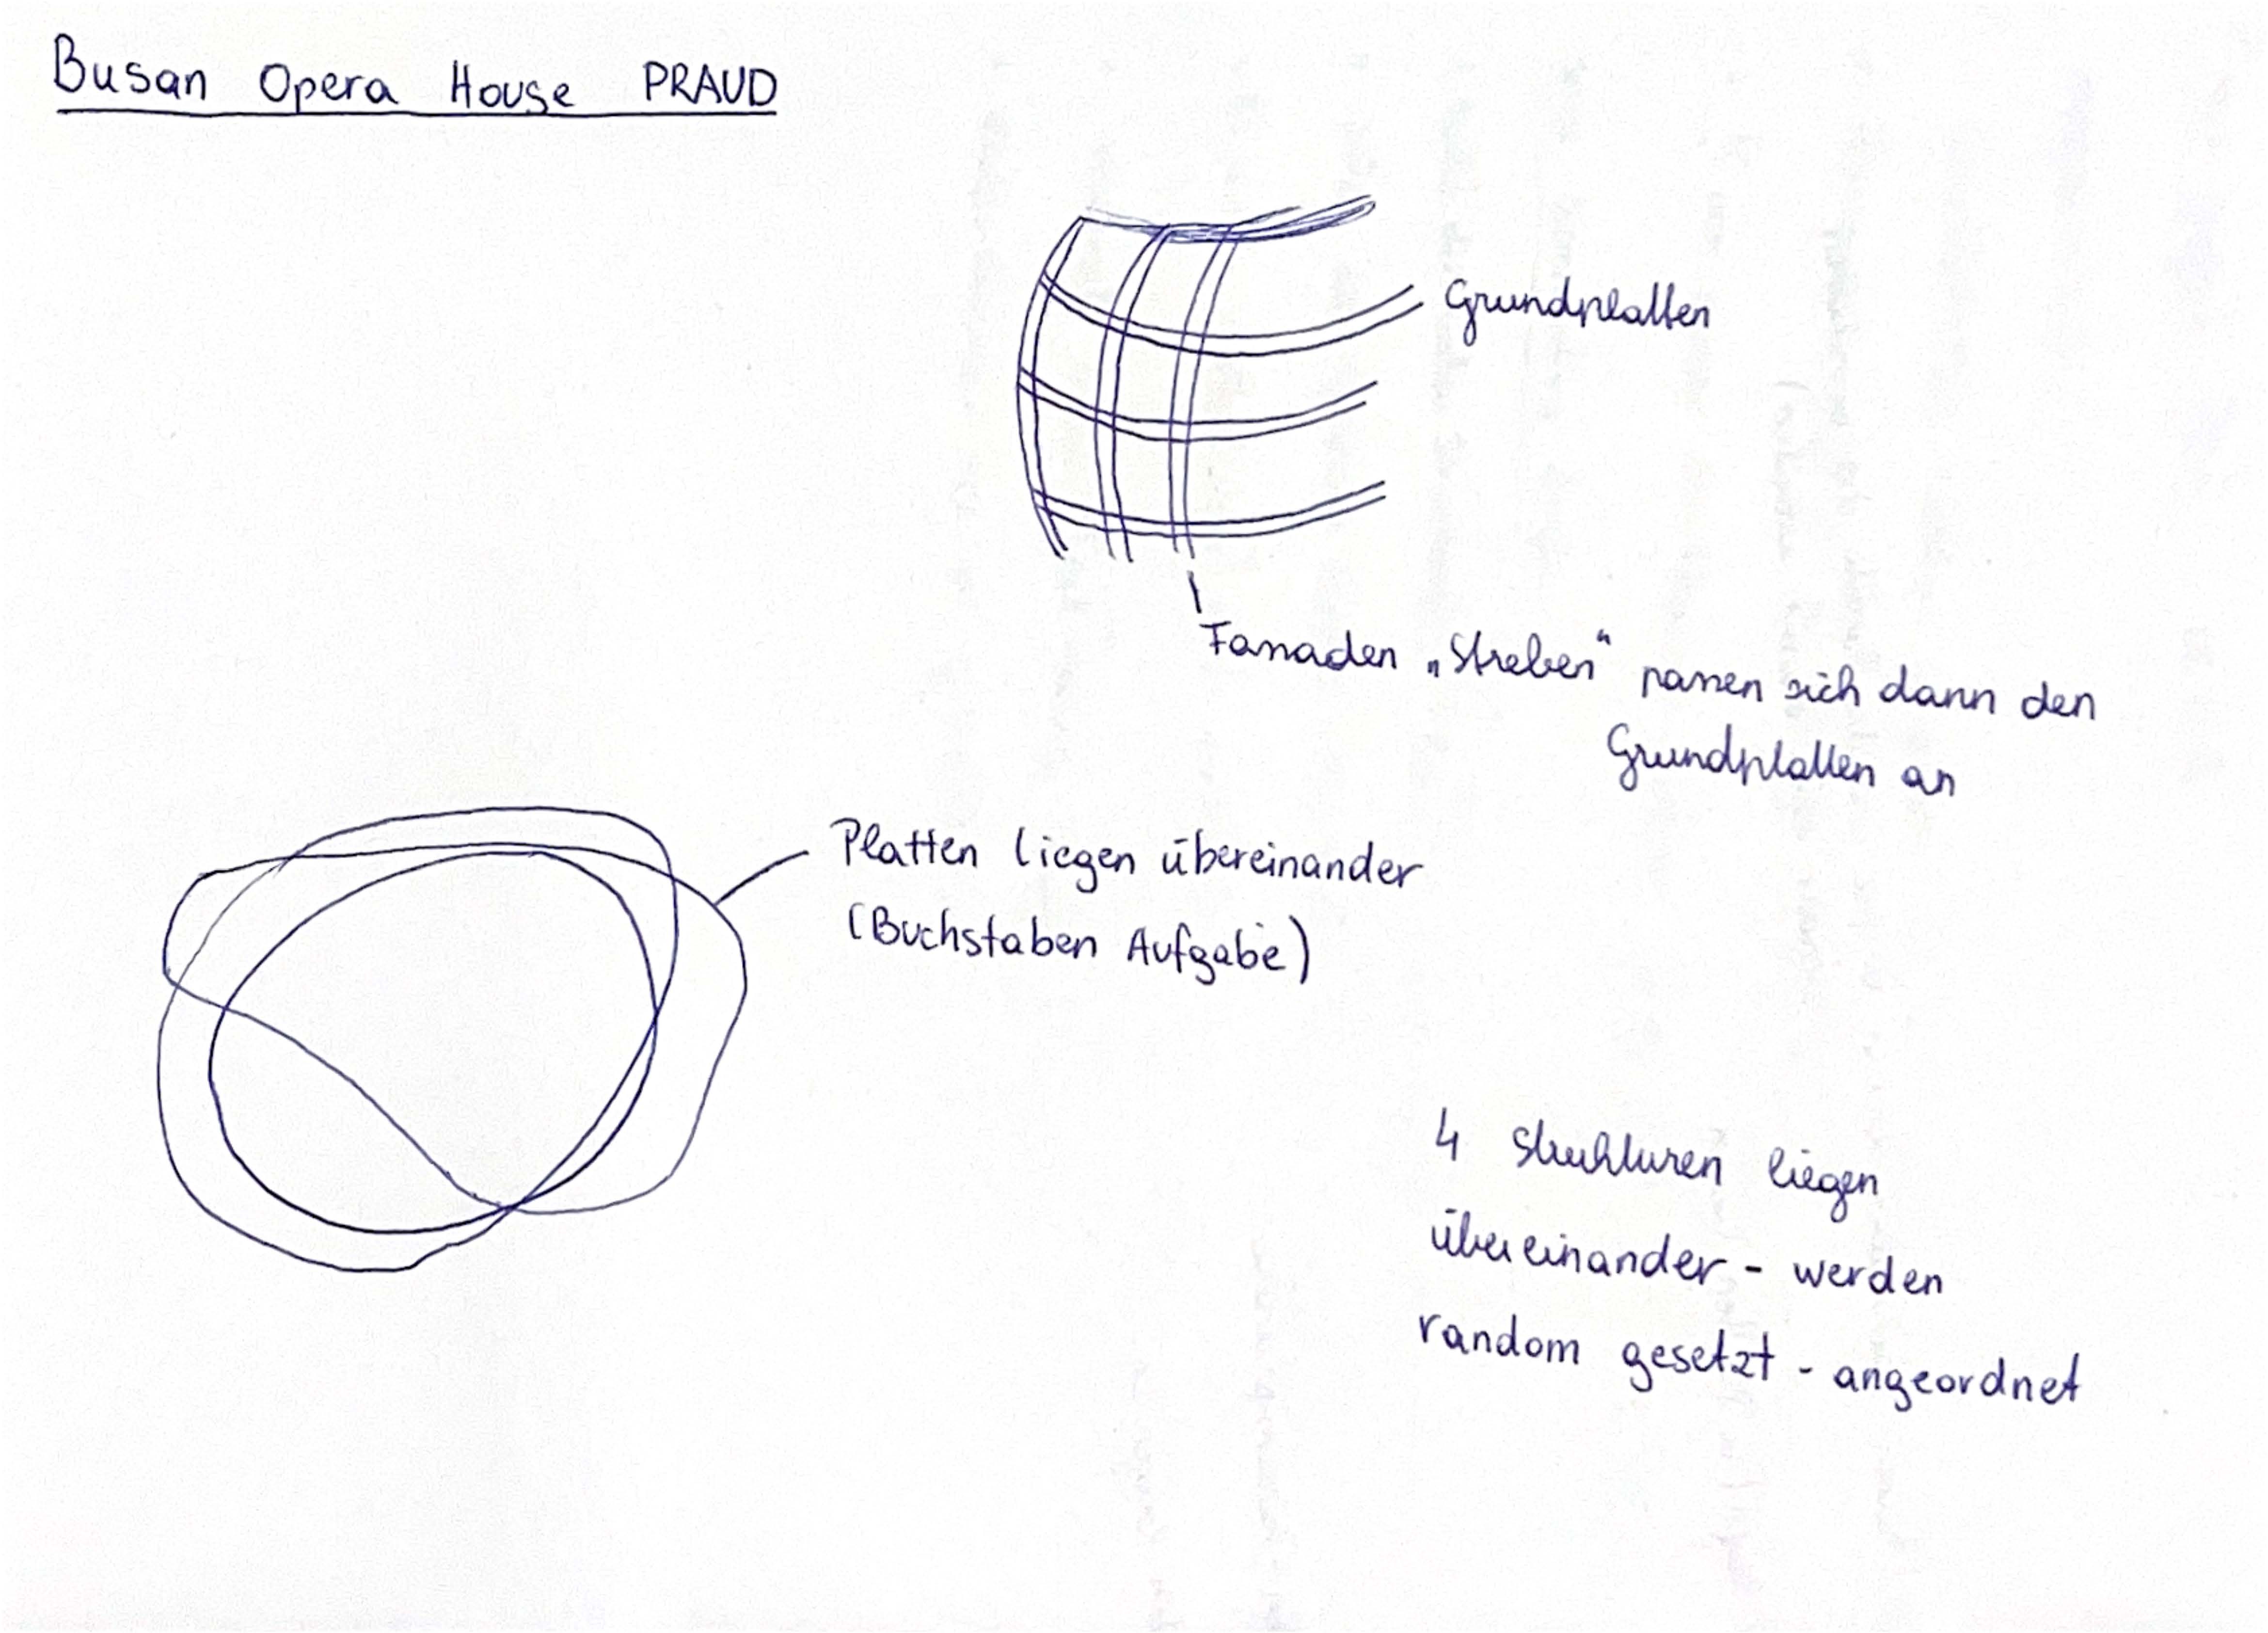 Busan Opera House PRAUD
Grundplatten
Fassaden „Streben“ passen sich dann den
Grundplatten an
Platten liegen übereinander
(Buchstaben Aufgabe)
4 Strukturen liegen
übereinander - werden
random gesetzt - angeordnet